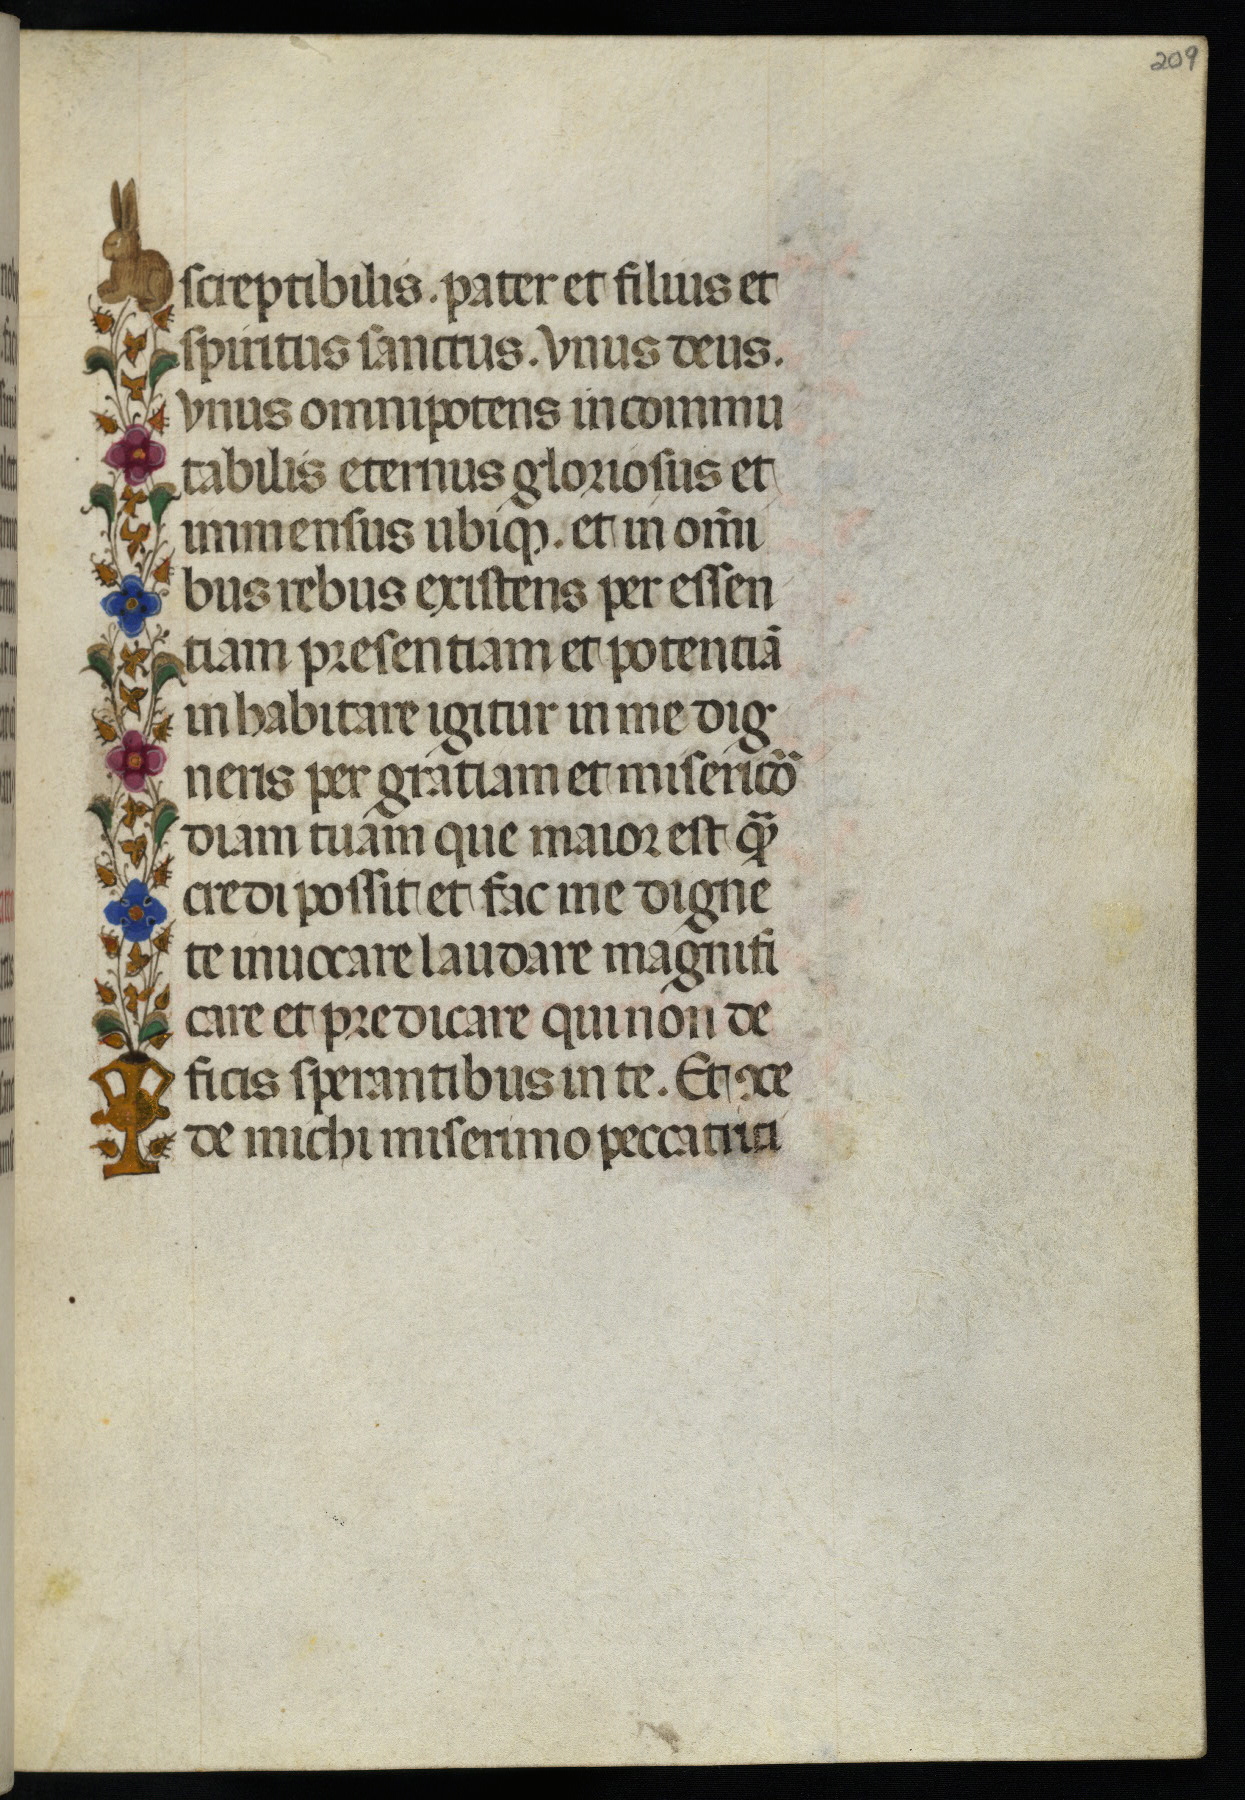 209
screptibilis. pater et filius et
spiritus sanctus. Vnus deus.
vnus omnipotens incommu
tabilis eternus gloriosus et
immensus ubiqꝫ. et in om̄i
bus rebus existens per essen
tiam presentiam et potentiā
inhabitare igitur in me dig
neris per gratiam et misericō
diam tuam que maior est qꝫ̄
credi possit et fac me digne
te inuocare laudare magnifi
care et predicare qui non de
ficis sperantibus in te. Et ꝯce
de michi miserimo peccatrici